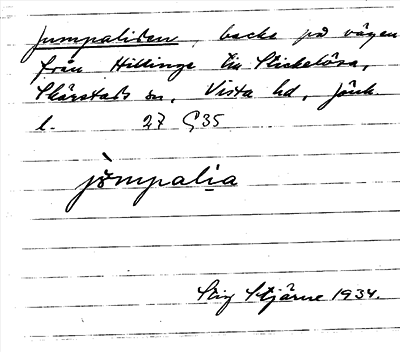 Jumpaliden, backe på vägen
från Hillinge till Stickelösa,
Skärstads sn, Vista hd, Jönk.
l. 27 S35
jòmpalia
Stig Stjärne 1934.